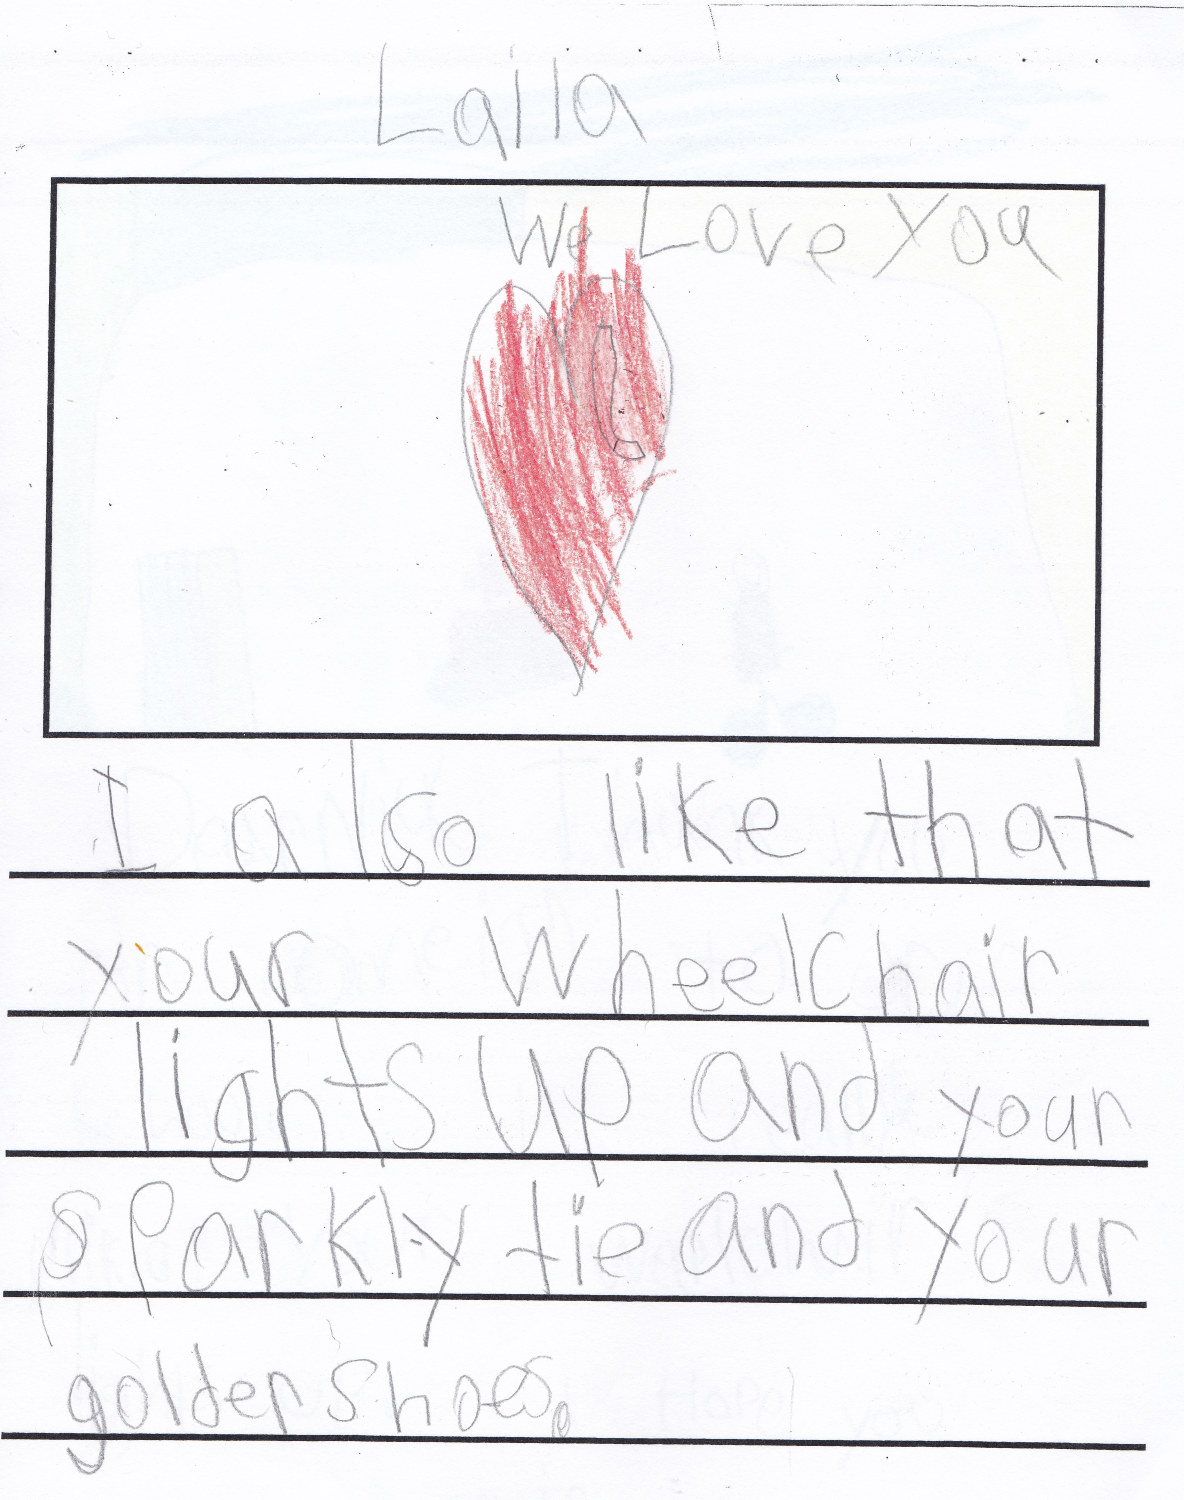 Lalla
We Love You
I also like that
your wheelchair
lights up and your
sparkly tie and your
golder shoes.